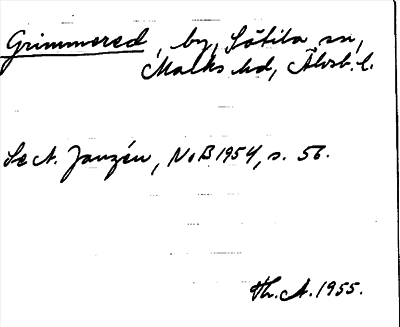 Grimmered, by, Sätila sn,
Marks hd, Älvsb. l.
Se A. Janzén, NoB 1954, s. 56.
Th. A. 1955.